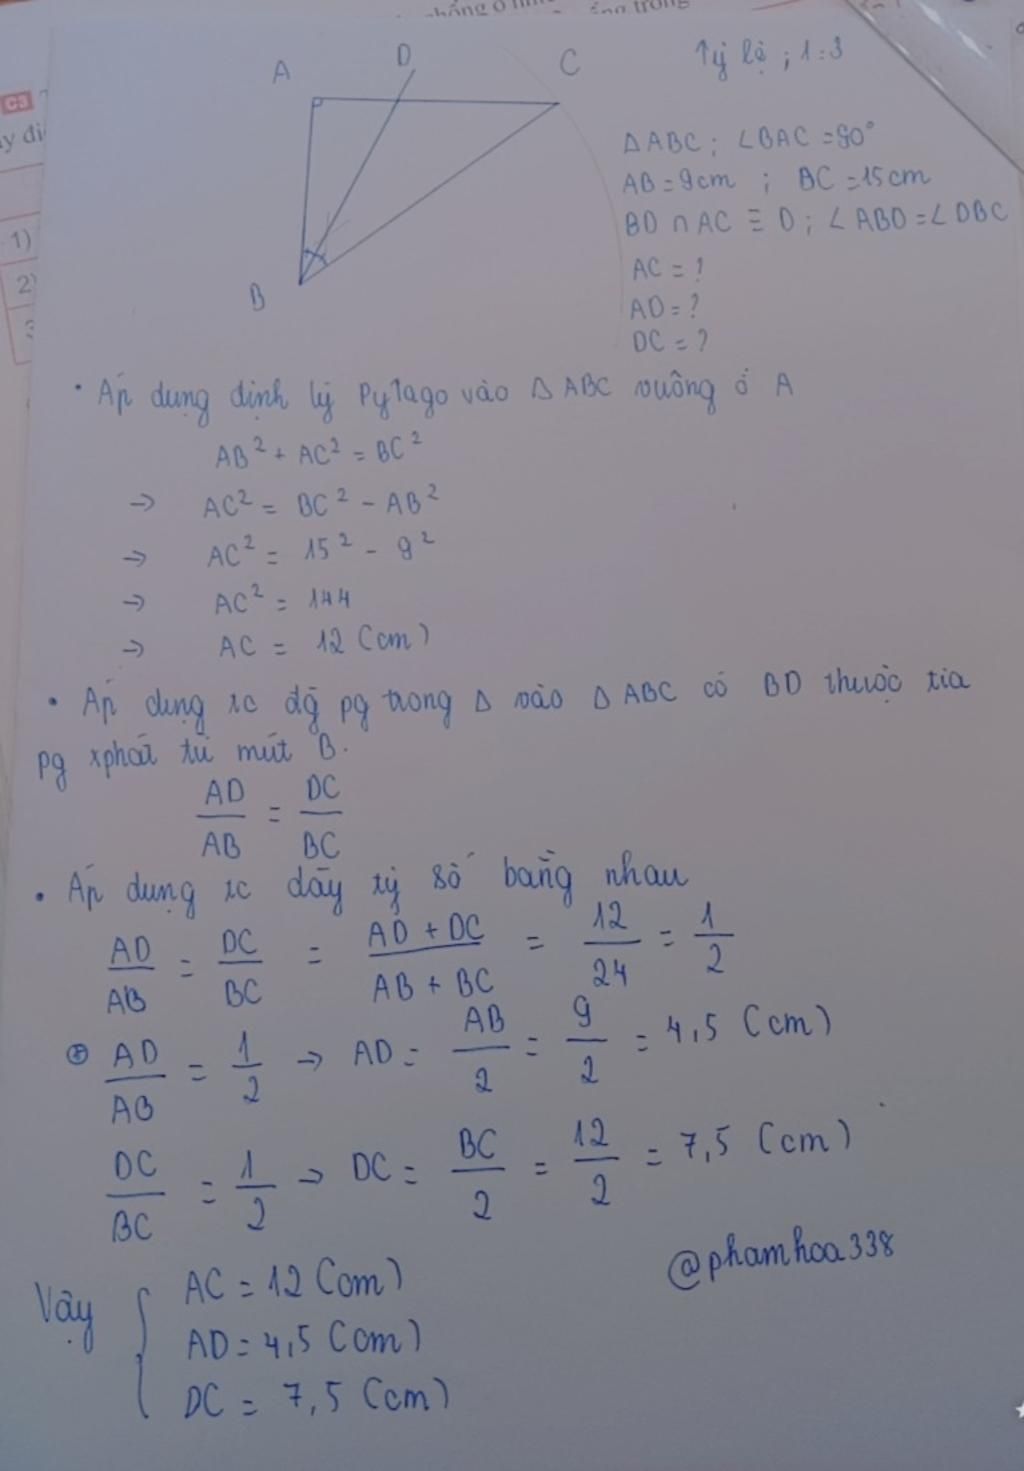 C3
y đi
1)
2)
3
A
D
C
B
Tỷ lệ ; 1:3
Δ ABC ; ∠BAC = 90°
AB = 9cm ; BC = 15cm
BD ∩ AC ≡ D ; ∠ ABD = ∠ DBC
AC = ?
AD = ?
DC = ?
• Áp dụng định lý Pytago vào Δ ABC vuông ở A
AB² + AC² = BC²
→ AC² = BC² - AB²
→ AC² = 15² - 9²
→ AC² = 144
→ AC = 12 (cm)
• Áp dụng tc đg pg trong Δ vào Δ ABC có BD thuộc tia
pg xphát từ mút B.
AD/AB = DC/BC
• Áp dụng tc dãy tỷ số bằng nhau
AD/AB = DC/BC = AD + DC/AB + BC = 12/24 = 1/2
⊛ AD/AB = 1/2 → AD = AB/2 = 9/2 = 4,5 (cm)
DC/BC = 1/2 → DC = BC/2 = 12/2 = 7,5 (cm)
@phamhoa338
Vậy { AC = 12 (cm)
AD = 4,5 (cm)
DC = 7,5 (cm)